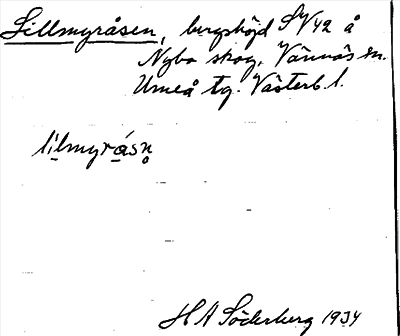 Lillmyråsen, bergshöjd SV42 å
Nybo skog, Vännäs sn.
Umeå tg. Västerb. l.
lilmyråsn
H A Söderberg 1934